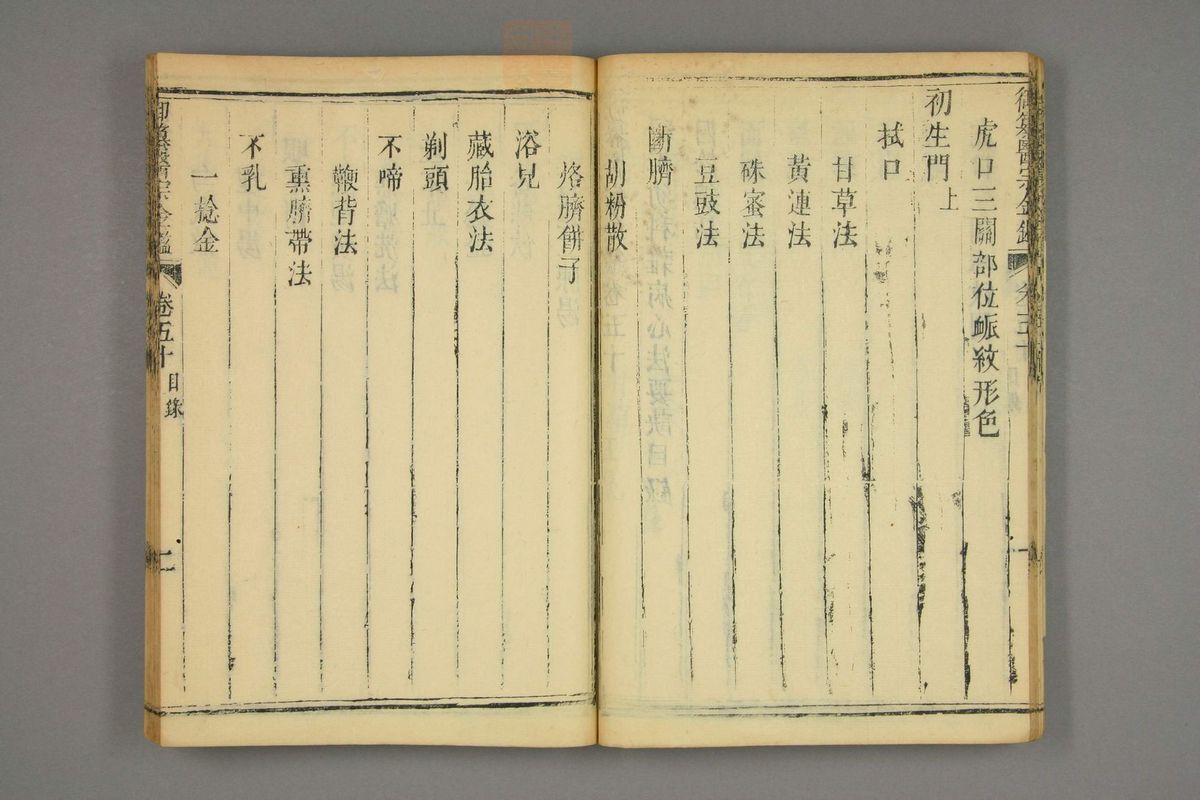 御纂醫宗金鑑 卷五十 一
虎口三關部位脈紋形色
初生門上
拭口
甘草法
黃連法
硃蜜法
豆豉法
斷臍
胡粉散
烙臍餅子
浴兒
藏胎衣法
剃頭
不啼
鞭背法
熏臍帶法
不乳
一捻金
御纂醫宗金鑑 卷五十 目錄 二